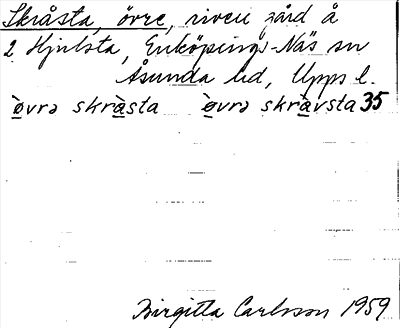 Skråsta, övre, riven gård å
2 Hjulsta, Enköpings-Näs sn
Åsunda hd, Upps l.
òvrə skràsta òvrə skràvsta 35
Birgitta Carlsson 1959